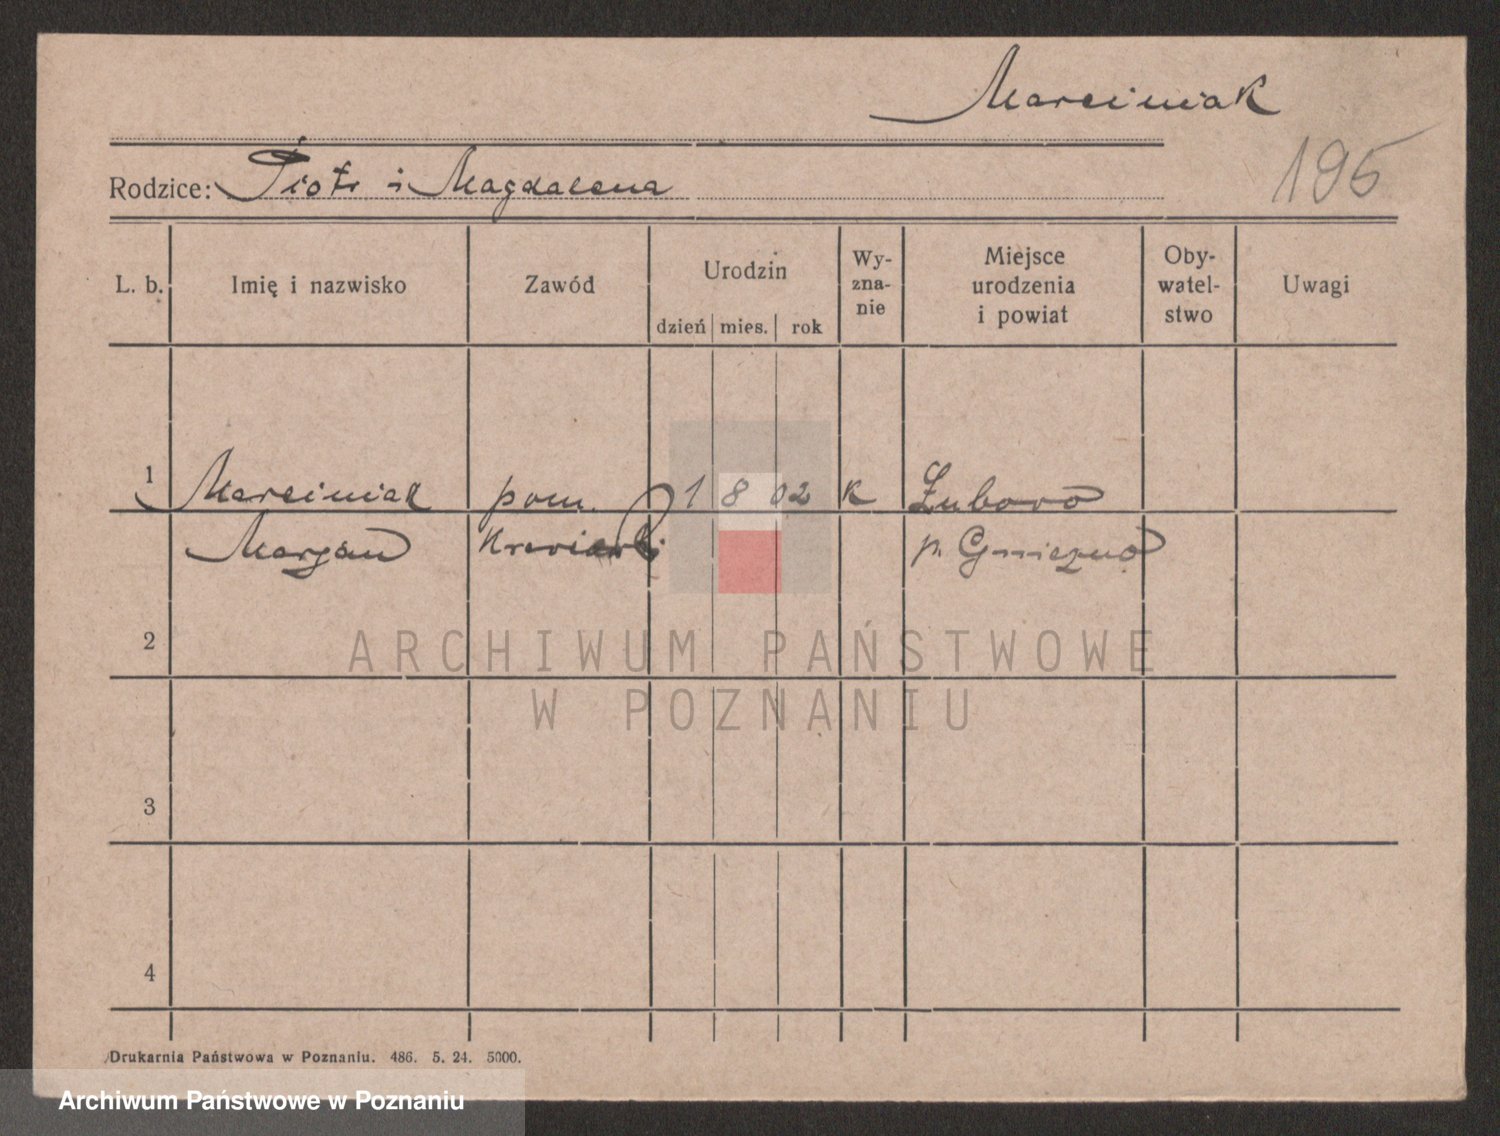 Marciniak
Rodzice: Piotr i Magdalena
195
L. b. Imię i nazwisko Zawód Urodzin dzień mies. rok Wy-zna-nie Miejsce urodzenia i powiat Oby-watel-stwo Uwagi
1 Marciniak pom. 1 8 02 k Łubowo
Marjan krawiecki p. Gniezno
2
3
4
ARCHIWUM PAŃSTWOWE
W POZNANIU
Drukarnia Państwowa w Poznaniu. 486. 5. 24. 5000.
Archiwum Państwowe w Poznaniu